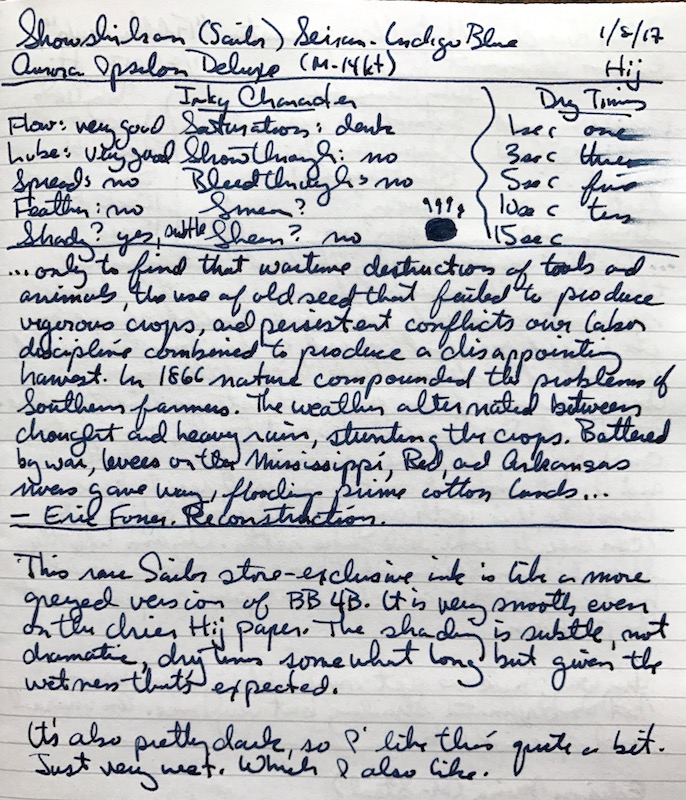 Showshinkan (Sailor) Seiran - Indigo Blue 1/8/17
Aurora Ipsilon Deluxe (M-14kt) Hij
Inky Character Dry Times
Flow: very good Saturation: dark 1sec one
Lube: very good Showthrough: no 3sec three
Spread: no Bleedthrough: no 5sec five
Feather: no Smear? 10sec ten
Shady? yes, subtle Sheen? no 15sec
...only to find that wartime destruction of tools and
animals, the use of old seed that failed to produce
vigorous crops, and persistent conflicts over labor
discipline combined to produce a disappointing
harvest. In 1866 nature compounded the problems of
Southern farmers. The weather alternated between
drought and heavy rain, stunting the crops. Battered
by war, levees on the Mississippi, Red, and Arkansas
rivers gave way, flooding prime cotton lands...
- Eric Foner. Reconstruction.
This rare Sailor store-exclusive ink is like a more
greyed version of BB 4B. It is very smooth even
on the drier Hij paper. The shading is subtle, not
dramatic, dry times somewhat long but given the
wetness that's expected.
It's also pretty dark, so I like this quite a bit.
Just very wet. Which I also like.